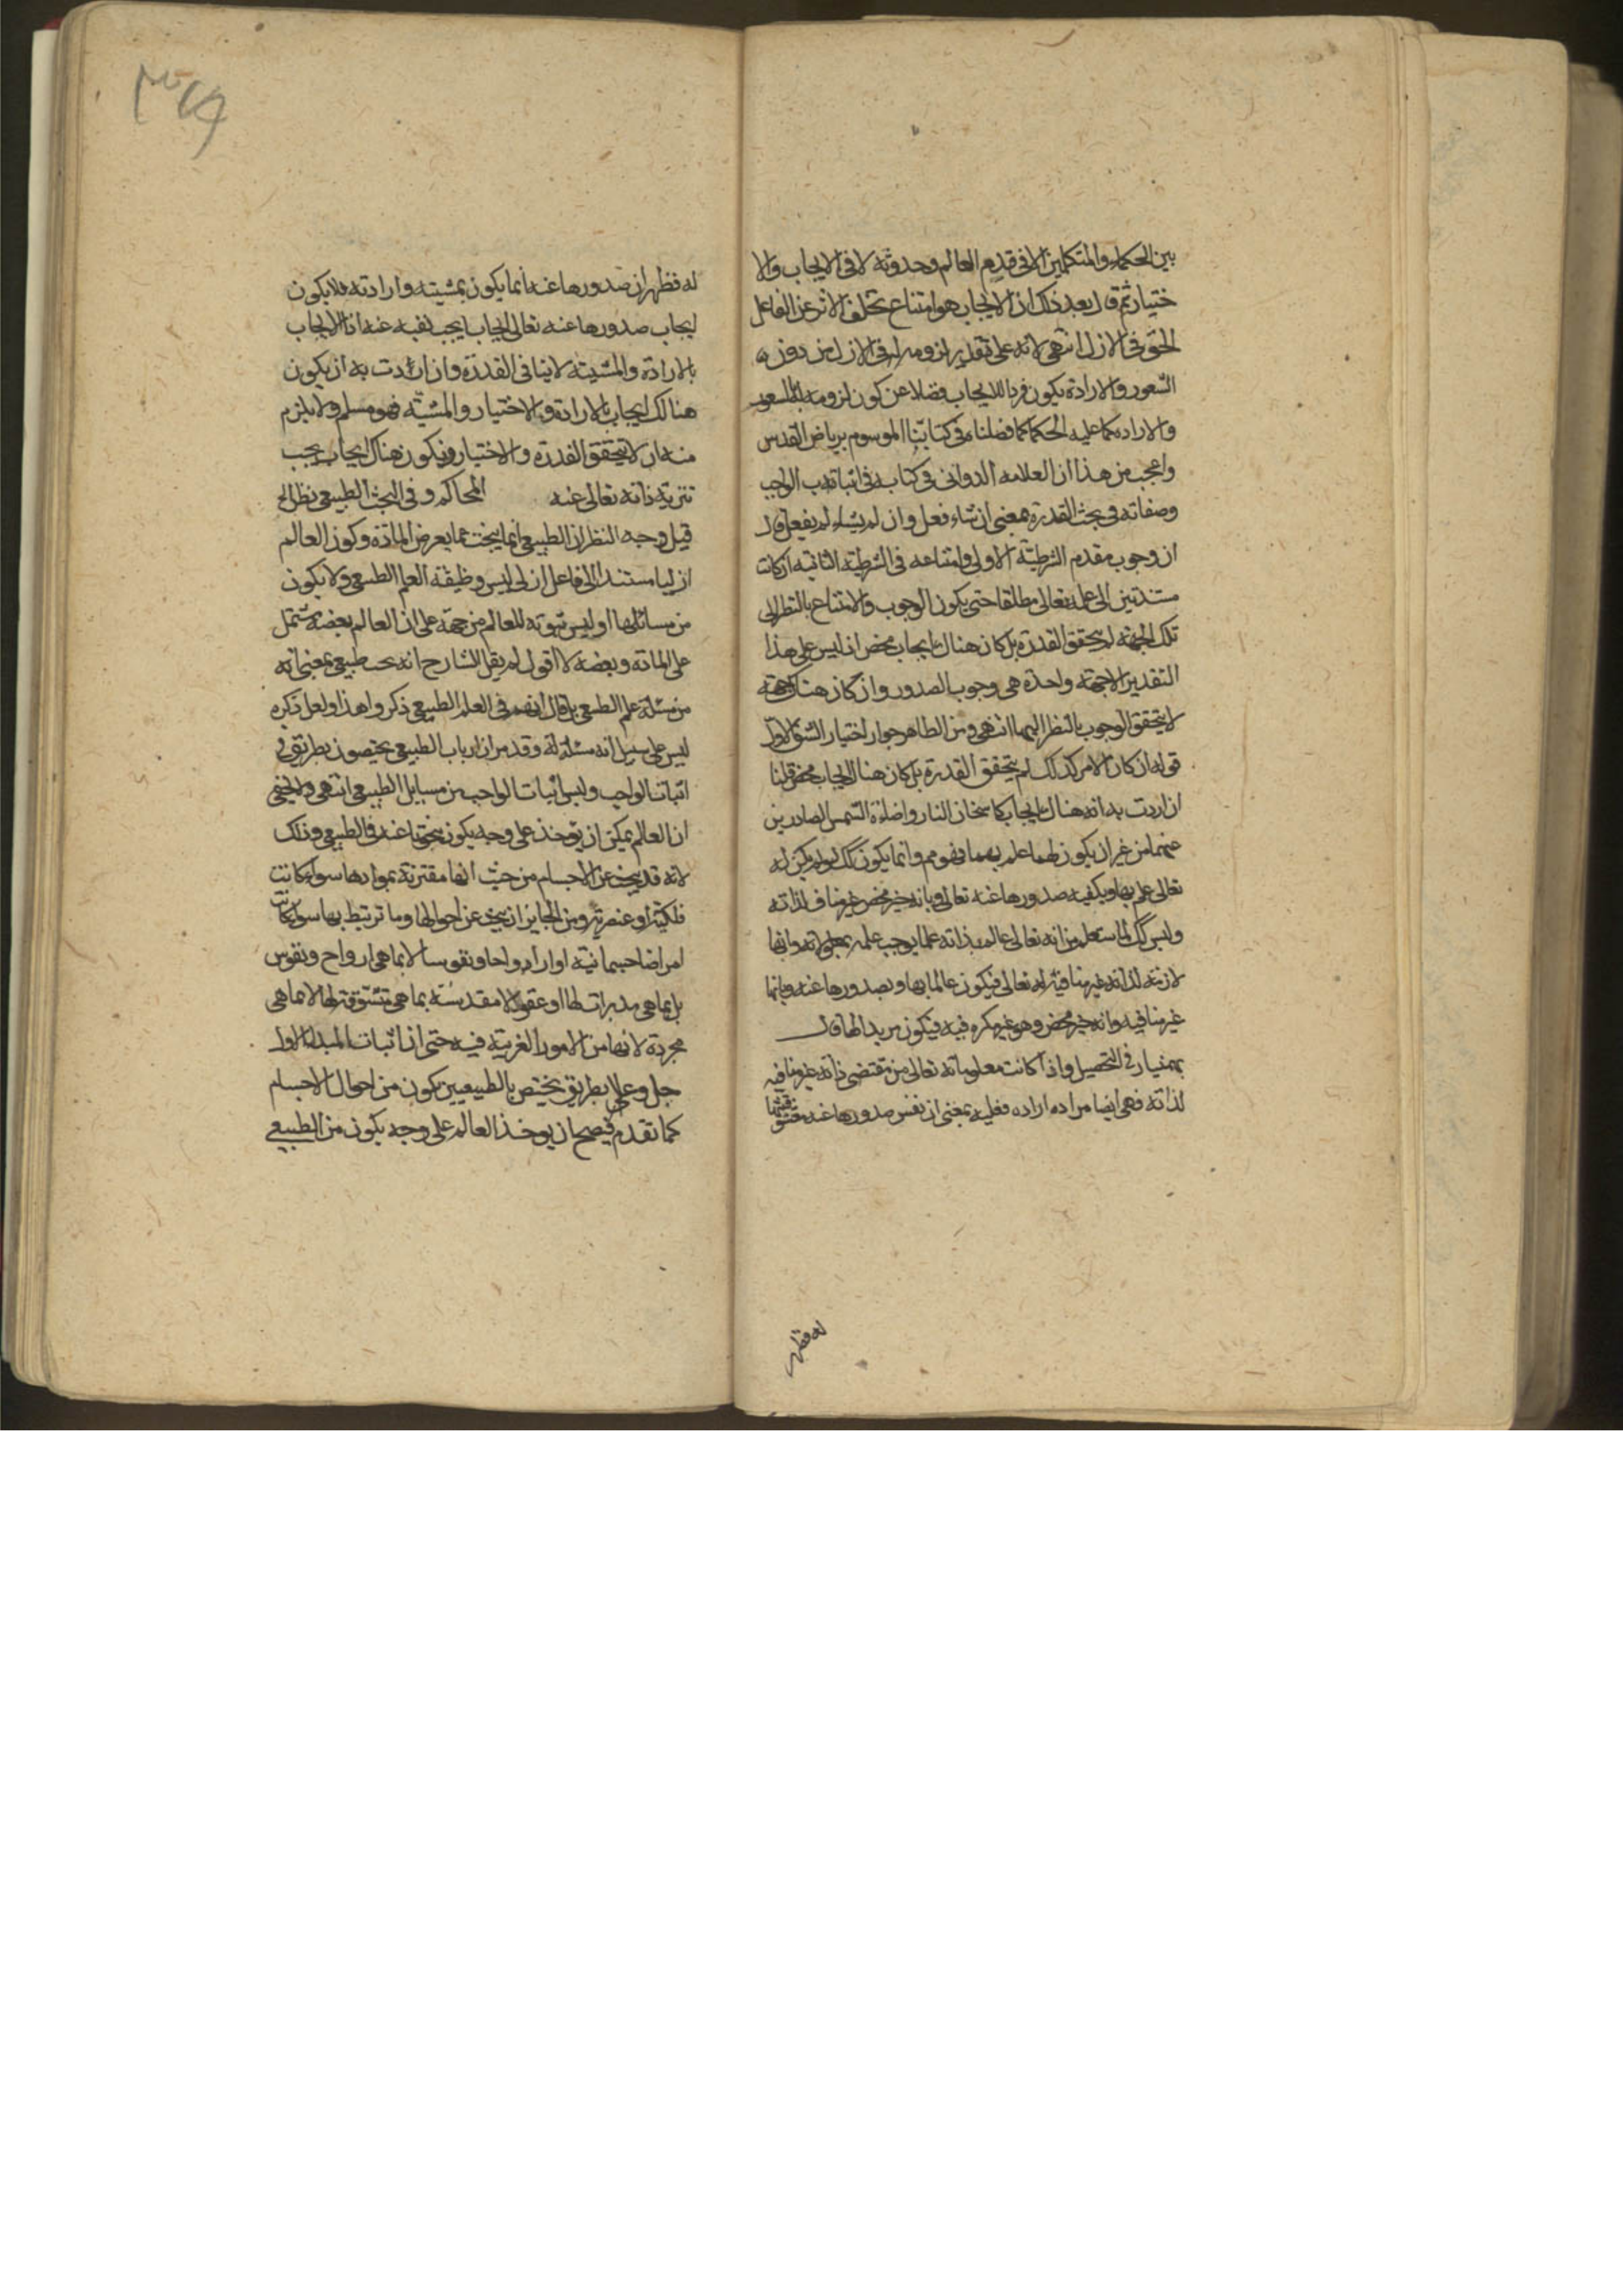 بين الحكماء والمتكلمين الا في قدم العالم وحدوثه لا في الايجاب والا
ختيار ثم قال بعد ذلك ان الايجاب هو امتناع تخلف الاثر عن الفاعل
في الازل انتهى لانه على تقدير لزومه له في الازل من دون
الشعور والارادة يكون فردا للايجاب فضلا عن كون لزومه بالشعور
والاراده كما عليه الحكما كما فصلناه في كتابنا الموسوم برياض القدس
واعجب من هذا ان العلامه الدواني في كتابه في اثباته الواجب
وصفاته في بحث القدرة بمعنى ان شاء فعل وان لم يشاء لم يفعل قال
ان وجوب مقدم الشرطية الاولى وامتناعه في الشرطية الثانيه ان كانت
مستندين الى علمه تعالى مطلقا حتى يكون الوجوب والامتناع بالنظر الى
تلك الجهة لم يتحقق القدرة بل كان هناك ايجاب محض اذ ليس على هذا
التقدير الا جهة واحدة هي وجوب الصدور وان كان هناك جهة
لا يتحقق الوجوب بالنظر اليهما انتهى ومن الظاهر جواز اختيار الشق الاول
قوله ان كان الامر كذلك لم يتحقق القدرة بل كان هناك ايجاب محض قلنا
ان اردت به انه هناك ايجاب كاسخان النار واضاءة الشمس الصادرين
عنهما من غير ان يكون لهما علم بهما فهو مم وانما يكون كك لو لم يكن له
تعالى علم بها وبكيفيه صدورها عنه تعالى وبانه خير محض غير مناف لذاته
وليس كك لما ستعلم من انه تعالى عالم بذاته علما يوجب علمه بمعلولاته وانها
لازمة لذاته غير منافية له تعالى فيكون عالما بها وبصدورها عنه وبانها
غير منافيه وانه خير محض وهو غير مكره فيه فيكون مريدا لها قال
بهمنيار في التحصيل واذا كانت معلوماته تعالى من مقتضى ذاته غير منافيه
لذاته فهي ايضا مراده اراده فعليه بمعنى ان نفس صدورها عنه
له فظهر
له فظهر ان صدورها عنه انما يكون بمشيته وارادته فلا يكون
ايجاب صدورها عنه تعالى ايجاب يجب نفيه عنه اذ الايجاب
بالارادة والمشيته لا ينافى القدرة وان اردت به ان يكون
هنالك ايجاب بالارادة والاختيار والمشية فهو مسلم ولا يلزم
منه ان لا يتحقق القدرة والاختيار ويكون هناك ايجاب يجب
تنزيه ذاته تعالى عنه المحاكم وفي البحث الطبيعي نظر الخ
قيل وجه النظر ان الطبيعي انما يبحث عما يعرض المادة وكون العالم
ازليا مستندا الى فاعل ازلي ليس وظيفة العلم الطبيعي ولا يكون
من مسائلها اوليس ثبوته للعالم من جهة على ان العالم بعضه يشتمل
على المادة وبعضه لا اقول لم يقل الشارح انه بحث طبيعي بمعنى انه
من مسئلة علم الطبيعي بل قال انهم في العلم الطبيعي ذكروا هذا ولعل ذكره
ليس على سبيل انه مسئلة له وقد مر ان ارباب الطبيعي يختصون بطريق في
اثبات الواجب وليس اثبات الواجب من مسايل الطبيعي انتهى ولا يخفى
ان العالم يمكن ان يؤخذ على وجه يكون بحثها عنه في الطبيعي وذلك
لانه قد يبحث عن الاجسام من حيث انها مقترنة بموادها سواء كانت
فلكية او عنصرية ومن الجايز ان يبحث عن احوالها وما ترتبط بها سواء كانت
امراضا جسمانية او ارواحا ونفوسا لا بما هي ارواح ونفوس
بل بما هي مدبرات لها او عقولا مقدسة بما هي متشوقة لها لا بما هي
مجردة لانها من الامور الغريبة فيه حتى ان اثبات المبدا الاول
جل وعلى بطريق يختص بالطبيعيين يكون من احوال الاجسام
كما تقدم فيصح ان يوخذ العالم على وجه يكون من الطبيعي